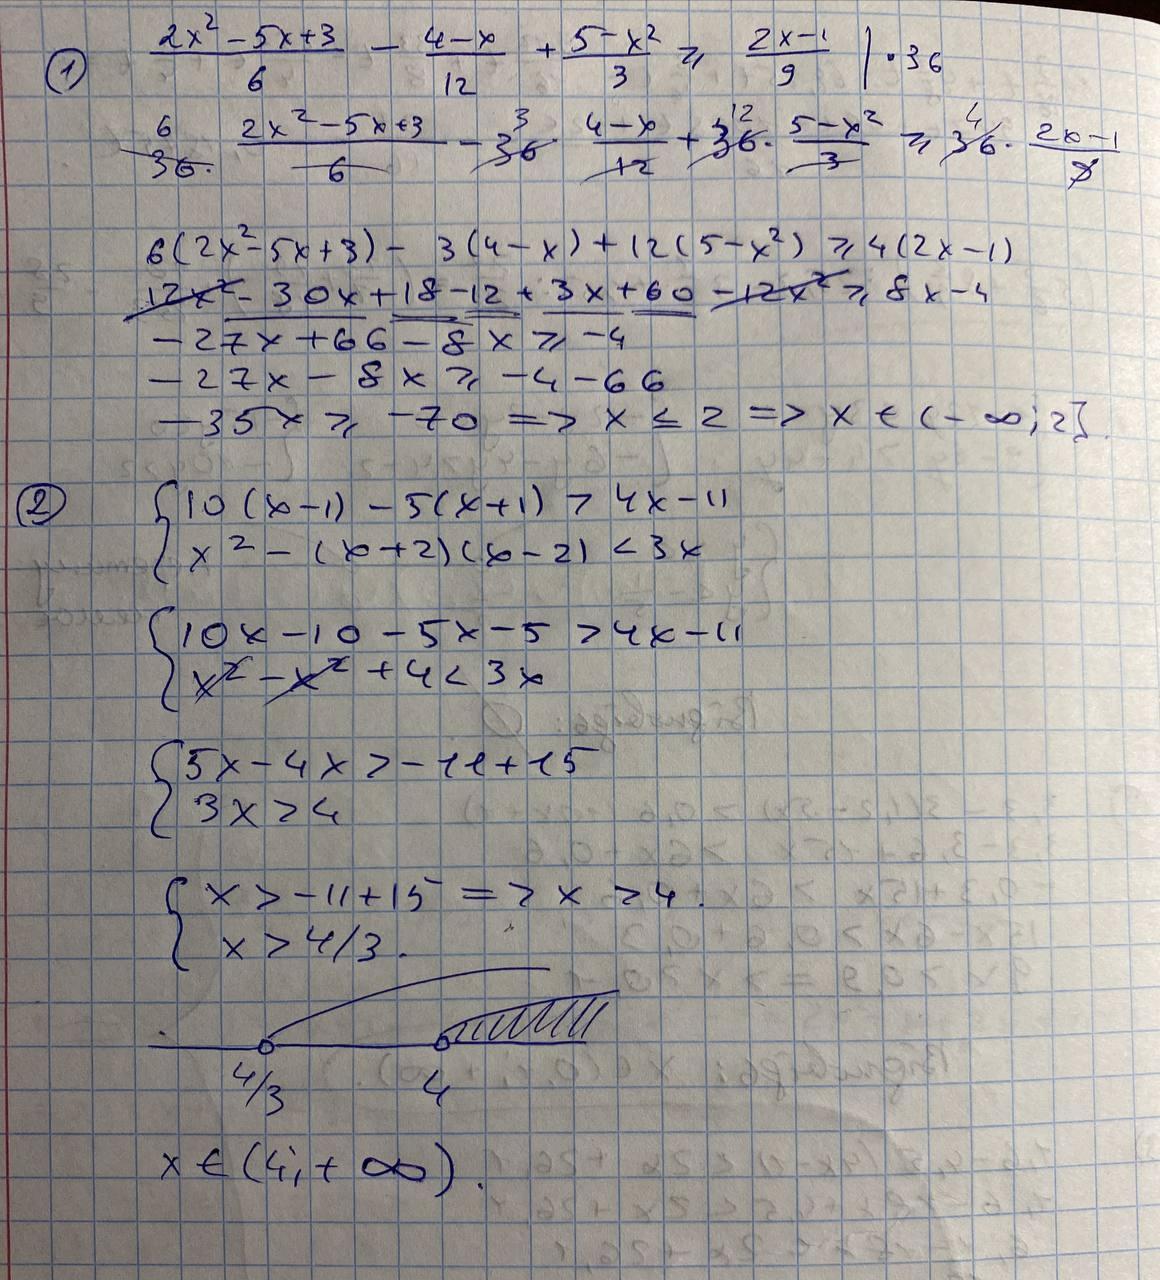 ① (2x² - 5x + 3)/6 - (4 - x)/12 + (5 - x²)/3 ≥ (2x - 1)/9 | · 36
36⁶ · (2x² - 5x + 3)/6 - 36³ (4 - x)/12 + 36¹² · (5 - x²)/3 ≥ 36⁴ · (2x - 1)/9
6(2x² - 5x + 3) - 3(4 - x) + 12(5 - x²) ≥ 4(2x - 1)
12x² - 30x + 18 - 12 + 3x + 60 - 12x² ≥ 8x - 4
- 27x + 66 - 8x ≥ -4
- 27x - 8x ≥ -4 - 66
- 35x ≥ -70 => x ≤ 2 => x ∈ (- ∞; 2].
② { 10(x - 1) - 5(x + 1) > 4x - 11
x² - (x + 2)(x - 2) < 3x
{ 10x - 10 - 5x - 5 > 4x - 11
x² - x² + 4 < 3x
{ 5x - 4x > -11 + 15
3x > 4
{ x > -11 + 15 => x > 4.
x > 4/3.
4/3 4
x ∈ (4; + ∞).